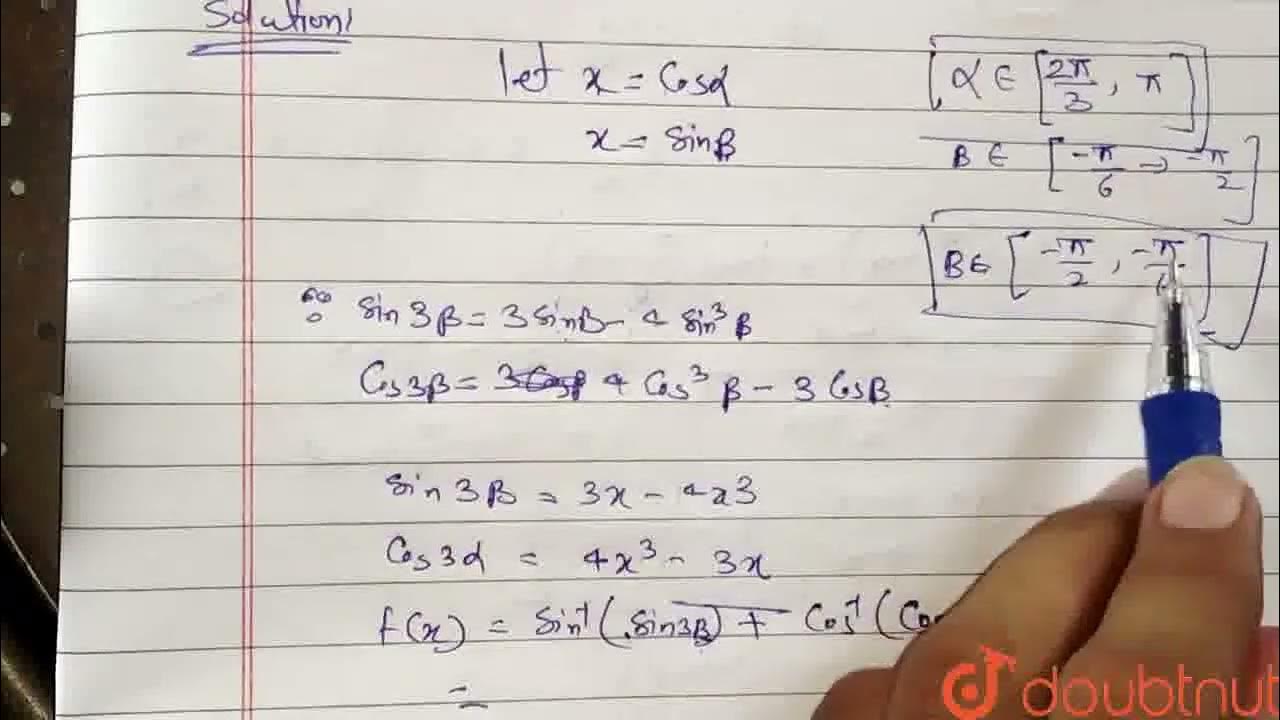 Solution,
let x = Cosα
α ∈ [2π/3, π]
x = sinβ
B ∈ [-π/6 → -π/2]
B ∈ [-π/2, -π/
∵ sin 3β = 3 sinβ - 4 sin³β
Cos3β = 4 Cos³β - 3 Cosβ
sin 3β = 3x - 4x3
Cos3α = 4x³ - 3x
f(x) = Sin⁻¹(sin3β) + Cos⁻¹(Cos
=
doubtnut